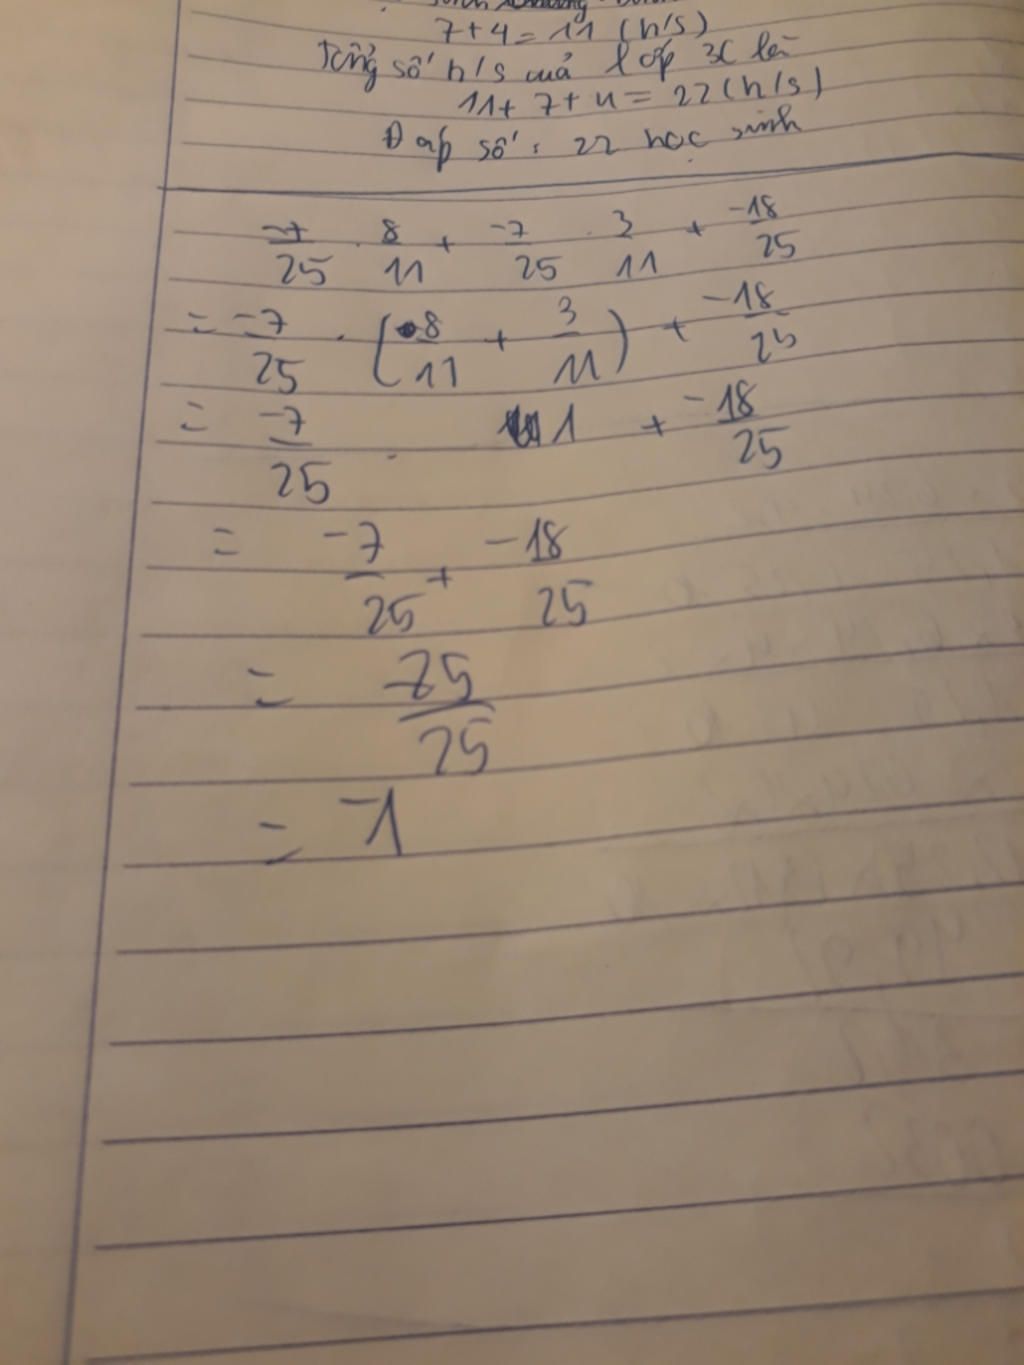 7+4=11 (h/s)
Tổng số h/s cuả lớp 3C là
11+7+4=22(h/s)
Đáp số: 22 học sinh
-7/25 . 8/11 + -7/25 . 3/11 + -18/25
= -7/25 . (8/11 + 3/11) + -18/25
= -7/25 . 1 + -18/25
= -7/25 + -18/25
= -25/25
= -1